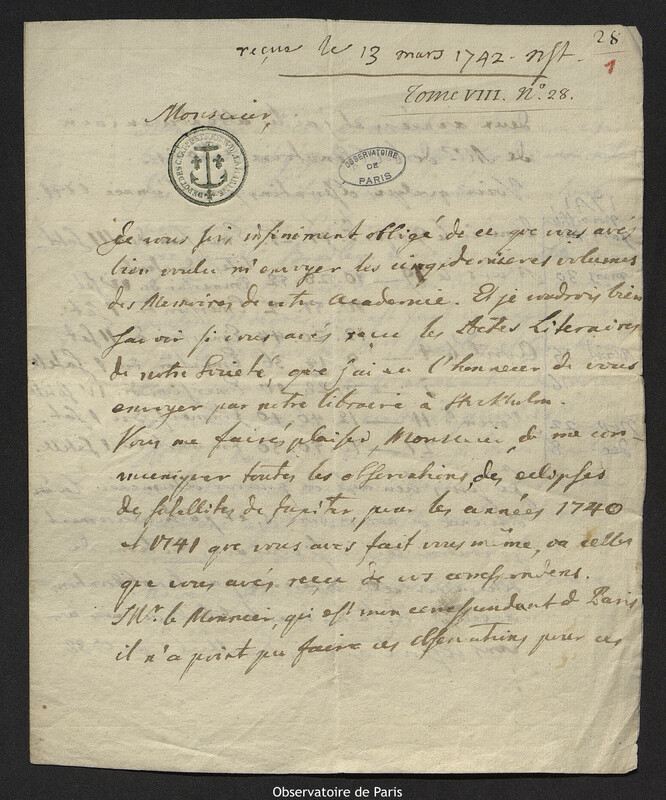 28
1
reçue le 13 mars 1742. nst.
Tome VIII. N.º 28.
Monsieur,
OBSERVATOIRE
DE
PARIS
Je vous suis infiniment obligé de ce que vous avés
bien voulu m'envoyer les cinq dernieres volumes
des Memoires de votre Academie. Et je voudrois bien
savoir si vous avés recu les Actes Literaires
de notre Societé, que j'ai eu l'honneur de vous
envoyer par notre libraire à Stokholm.
Vous me fairés plaisir, Monsieur, de me com-
muniquer toutes les observations des eclipses
des satellites de Jupiter, pour les années 1740
et 1741 que vous avés fait vous même, ou celles
que vous avés recu de vos correspondens.
Mr. le Monnier, qui est mon correspondant à Paris
il n'a point pu faire ces observations pour ces
Observatoire de Paris